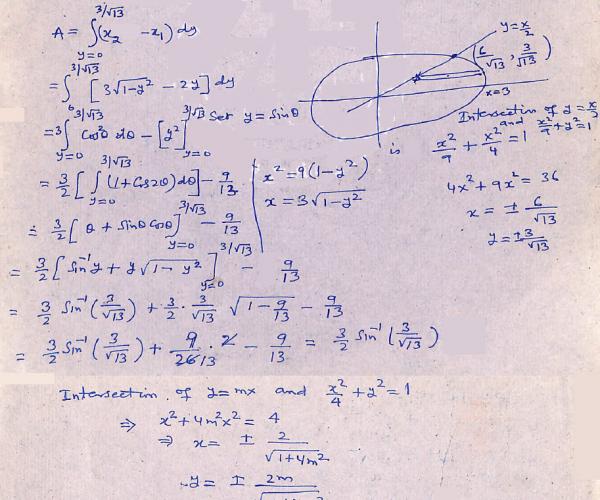 A = ∫_{y=0}^{3/√13} (x₂ − x₁) dy
= ∫_0^{3/√13} [3√1−y² − 2y] dy
= 3∫_{y=0}^{3/√13} cos²θ dθ − [y²]_{y=0}^{3/√13} Set y = sinθ
= 3/2 [∫_{y=0}^{3/√13} (1+cos2θ) dθ] − 9/13
= 3/2 [θ + sinθ cosθ]_{y=0}^{3/√13} − 9/13
= 3/2 [sin⁻¹y + y√1−y²]_{y=0}^{3/√13} − 9/13
= 3/2 sin⁻¹(3/√13) + 3/2 · 3/√13 √1−9/13 − 9/13
= 3/2 sin⁻¹(3/√13) + 9/26 13 · 2 − 9/13 = 3/2 sin⁻¹(3/√13)
x² = 9(1−y²)
x = 3√1−y²
y = x/2
(6/√13, 3/√13)
x=3
Intersection of y = x/2
and x²/9 + y² = 1
is x²/9 + x²/4 = 1
4x² + 9x² = 36
x = ± 6/√13
y = ± 3/√13
Intersection of y = mx and x²/4 + y² = 1
⇒ x² + 4m²x² = 4
⇒ x = ± 2/√1+4m²
y = ± 2m